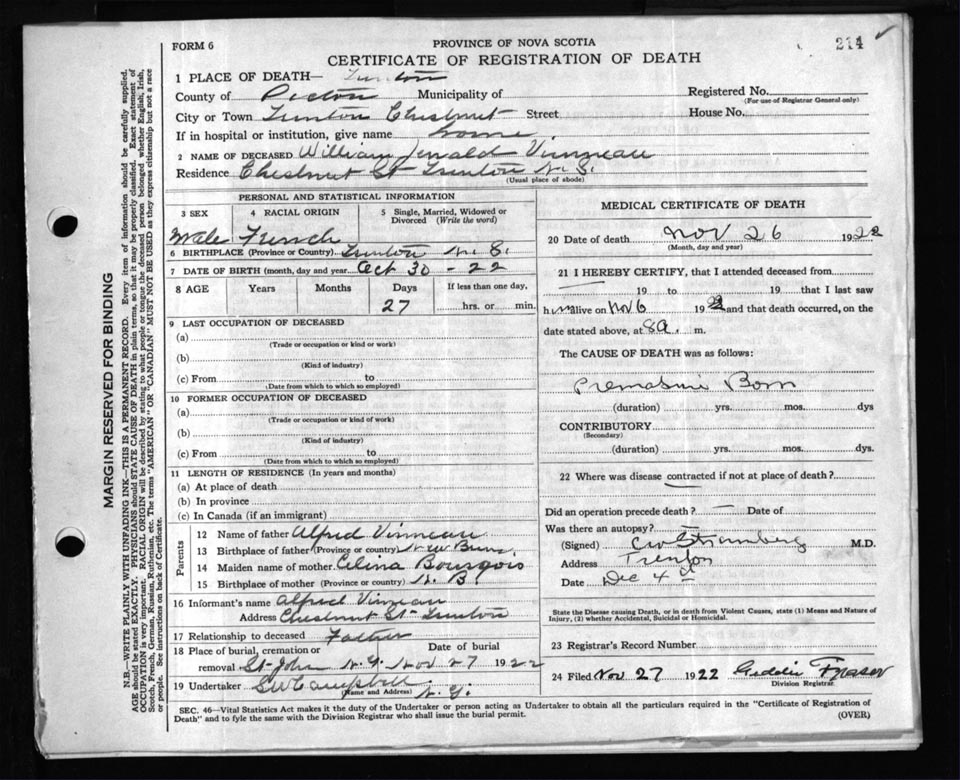 FORM 6
PROVINCE OF NOVA SCOTIA
214
CERTIFICATE OF REGISTRATION OF DEATH
1 PLACE OF DEATH— Trenton
County of Pictou Municipality of
Registered No.
(For use of Registrar General only)
City or Town Trenton Chestnut Street
House No.
If in hospital or institution, give name home
2 NAME OF DECEASED William Jerald Vinneau
Residence Chestnut St Trenton N. S.
(Usual place of abode)
PERSONAL AND STATISTICAL INFORMATION
3 SEX
4 RACIAL ORIGIN
5 Single, Married, Widowed or Divorced (Write the word)
Male French
6 BIRTHPLACE (Province or Country) Trenton N. S.
7 DATE OF BIRTH (month, day and year) Oct 30 - 22
8 AGE Years Months Days If less than one day,
27 hrs. or min.
9 LAST OCCUPATION OF DECEASED
(a)
(Trade or occupation or kind or work)
(b)
(Kind of industry)
(c) From to
(Date from which to which so employed)
10 FORMER OCCUPATION OF DECEASED
(a)
(Trade or occupation or kind of work)
(b)
(Kind of industry)
(c) From to
(Date from which to which so employed)
11 LENGTH OF RESIDENCE (In years and months)
(a) At place of death
(b) In province
(c) In Canada (if an immigrant)
Parents
12 Name of father Alfred Vinneau
13 Birthplace of father (Province or country) New Bruns.
14 Maiden name of mother Celina Bourgois
15 Birthplace of mother (Province or country) N. B.
16 Informant's name Alfred Vinneau
Address Chestnut St Trenton
17 Relationship to deceased Father
18 Place of burial, cremation or removal
Date of burial
St John N. G. Nov 27 1922
19 Undertaker SW Campbell N. G.
(Name and Address)
MEDICAL CERTIFICATE OF DEATH
20 Date of death Nov 26 1922
(Month, day and year)
21 I HEREBY CERTIFY, that I attended deceased from
— 19 to 19 that I last saw
him alive on Nov 6 1922 and that death occurred, on the
date stated above, at 8 a. m.
The CAUSE OF DEATH was as follows:
Premature Born
(duration) yrs. mos. dys
CONTRIBUTORY
(Secondary)
(duration) yrs. mos. dys.
22 Where was disease contracted if not at place of death?
Did an operation precede death? — Date of
Was there an autopsy? —
(Signed) M.D.
Address Trenton
Date Dec 4
State the Disease causing Death, or in death from Violent Causes, state (1) Means and Nature of
Injury, (2) whether Accidental, Suicidal or Homicidal.
23 Registrar's Record Number
24 Filed Nov 27 1922 Geddie Fraser
Division Registrar
SEC. 46—Vital Statistics Act makes it duty of the Undertaker or person acting as Undertaker to obtain all the particulars required in the "Certificate of Registration of
Death" and to fyle the same with the Division Registrar who shall issue the burial permit.
(OVER)
MARGIN RESERVED FOR BINDING
N.B.—WRITE PLAINLY WITH UNFADING INK—THIS IS A PERMANENT RECORD. Every item of information should be carefully supplied.
AGE should be stated EXACTLY. PHYSICIANS should STATE CAUSE OF DEATH in plain terms, so that it may be properly classified. Exact statement of
OCCUPATION is very important. RACIAL ORIGIN will be described by stating to what people or tongue the deceased person belonged whether English, Irish,
Scotch, French, German, Russian, Ruthenian, etc. The terms "AMERICAN" OR "CANADIAN" MUST NOT BE USED as they express citizenship but not a race
or people. See instructions on back of Certificate.